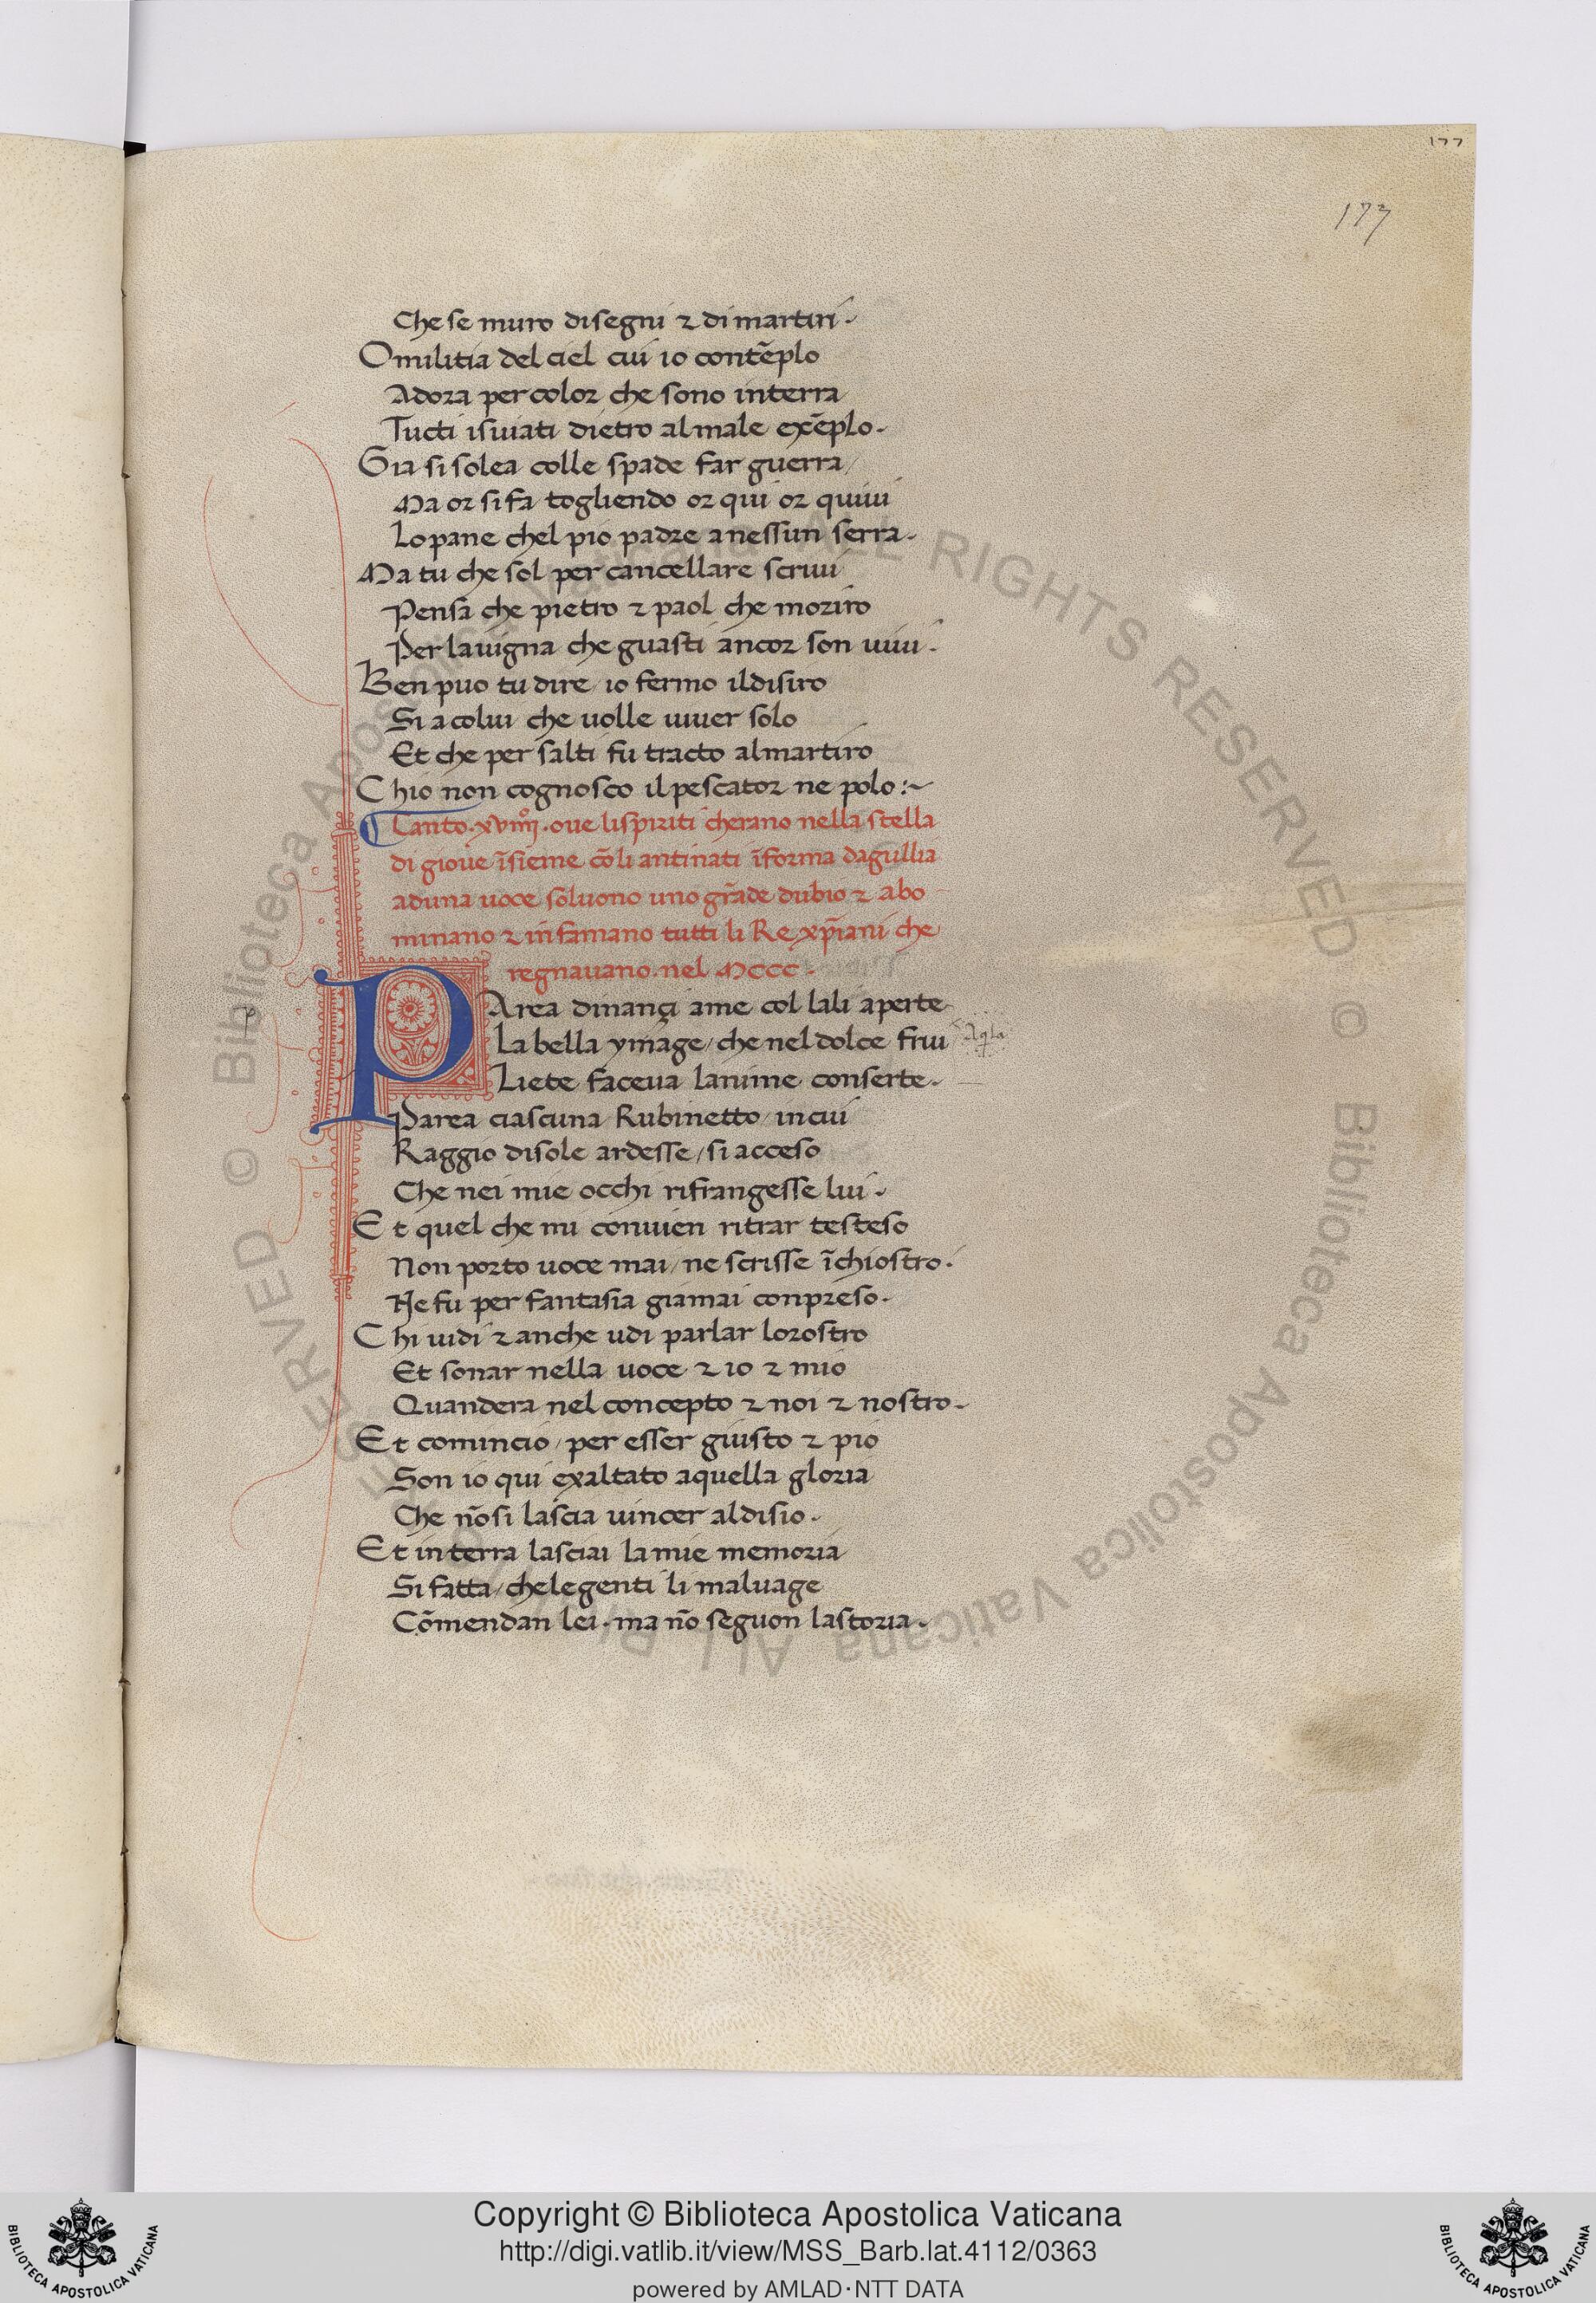 177
177
Che se muro disegni ⁊ di martiri.
O militia del ciel cui io contẽplo
Adora per color che sono interra
Tucti isuiati dietro al male exẽplo.
Gia si solea colle spade far guerra/
Ma or si fa togliendo or qui or quiui
Lo pane chel pio padre a nessun serra.
Ma tu che sol per cancellare scriui
Pensa che pietro ⁊ paol che moriro
Per la uigna che guasti ancor son uiui.
Ben puo tu dire/ io fermo il disiro
Si a colui che uolle uiuer solo
Et che per salti fu tracto al martiro
Chio non cognosco il pescator ne polo:~
Canto.xviiijº.oue li spiriti cherano nella stella
di gioue ĩsieme cõ li antinati ĩforma dagullia
aduna uoce soluono uno grãde dubio ⁊ abo
minano ⁊ infamano tutti li Re xp̃iani che
regnauano.nel Mccc.
PArea dinançi ame col lali aperte
La bella ymage/ che nel dolce frui
Liete faceua lanime conserte.
Parea ciascuna Rubinetto/ in cui
Raggio di sole ardesse/ si acceso
Che nei mie occhi rifrangesse lui.
Et quel che mi conuien ritrar testeso
Non porto uoce mai/ ne scrisse ĩchiostro.
Ne fu per fantasia giamai conpreso.
Chi uidi ⁊ anche udi parlar lo rostro
Et sonar nella uoce ⁊ io ⁊ mio
Quandera nel concepto ⁊ noi ⁊ nostro.
Et comincio/ per esser giusto ⁊ pio
Son io qui exaltato aquella gloria
Che nõ si lascia uincer al disio.
Et in terra lasciai la mie memoria
Si fatta/ che le genti li maluage
Cõmendan lei. ma nõ seguon la storia.
Copyright © Biblioteca Apostolica Vaticana
http://digi.vatlib.it/view/MSS_Barb.lat.4112/0363
powered by AMLAD·NTT DATA